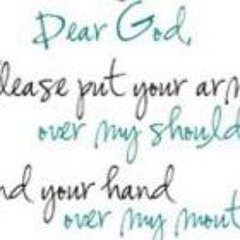 Dear God,
lease put your arm
over my should
nd your hand
over my mout